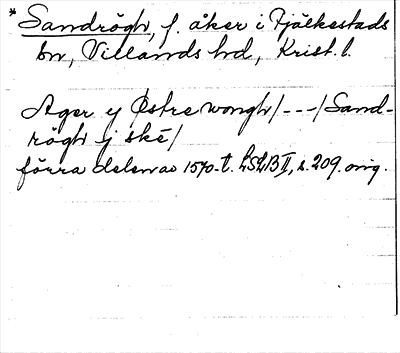 * Sandrögh, f. åker i Fjälkestads
sn, Villands hd, Krist. l.
Ager y Østre wongh/---/Sand-
rögh ij ske/
förra delen av 1570-t. LSLB II, s. 209. orig.